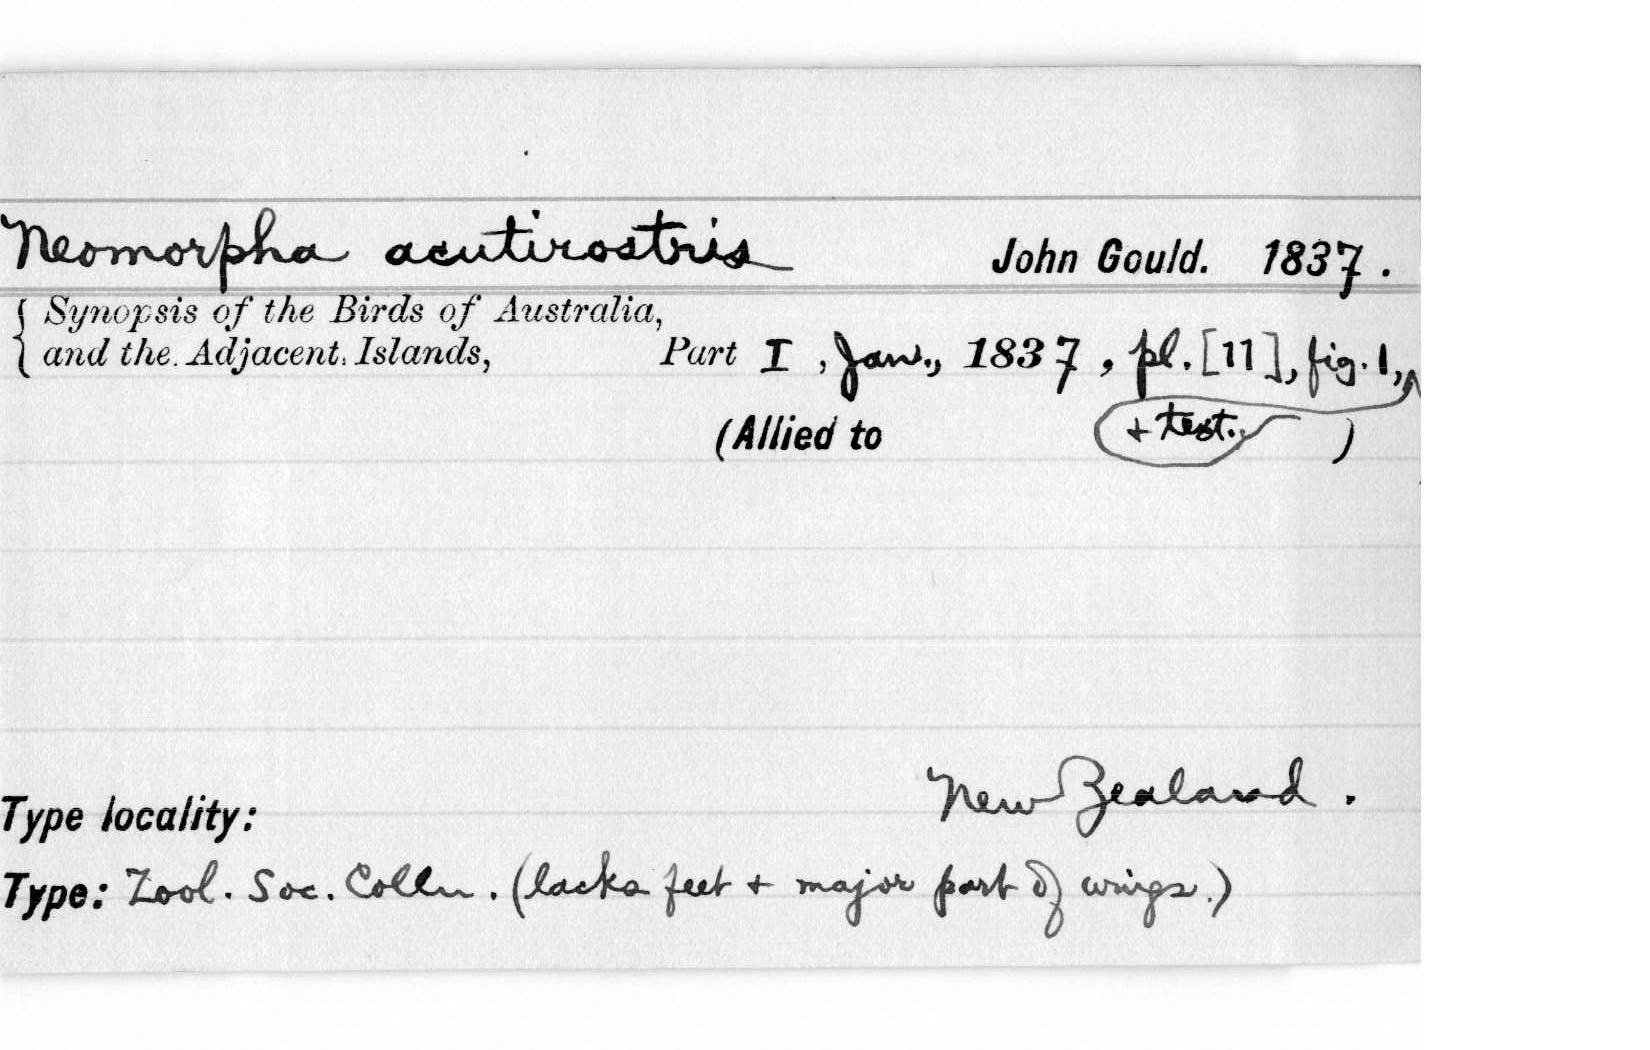 Neomorpha acutirostris John Gould. 1837.
{ Synopsis of the Birds of Australia,
and the Adjacent Islands, Part I, Jan., 1837, pl. [11], fig. 1, ^
(Allied to + text. )
New Zealand.
Type locality:
Type: Zool. Soc. Colln. (lacks feet + major part of wings.)